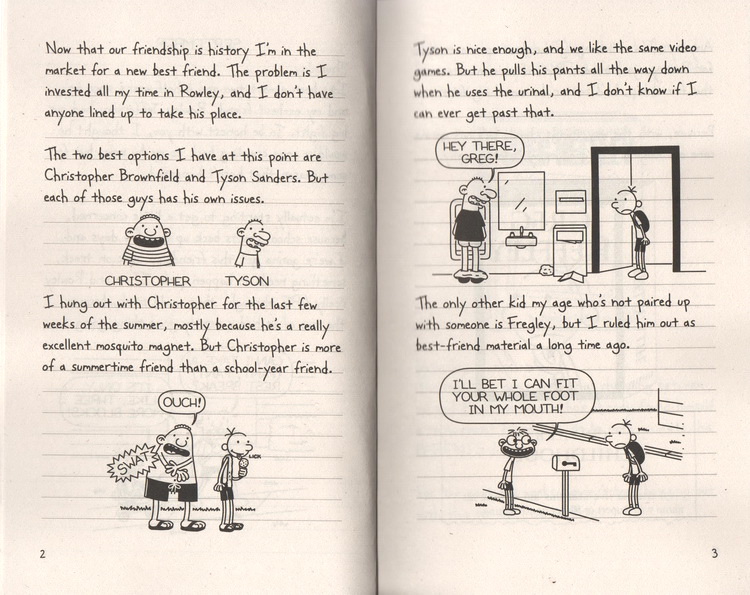 Now that our friendship is history I'm in the
market for a new best friend. The problem is I
invested all my time in Rowley, and I don't have
anyone lined up to take his place.
The two best options I have at this point are
Christopher Brownfield and Tyson Sanders. But
each of those guys has his own issues.
CHRISTOPHER
TYSON
I hung out with Christopher for the last few
weeks of the summer, mostly because he's a really
excellent mosquito magnet. But Christopher is more
of a summertime friend than a school-year friend.
OUCH!
SWAT
LICK
2
Tyson is nice enough, and we like the same video
games. But he pulls his pants all the way down
when he uses the urinal, and I don't know if I
can ever get past that.
HEY THERE,
GREG!
The only other kid my age who's not paired up
with someone is Fregley, but I ruled him out as
best-friend material a long time ago.
I'LL BET I CAN FIT
YOUR WHOLE FOOT
IN MY MOUTH!
3